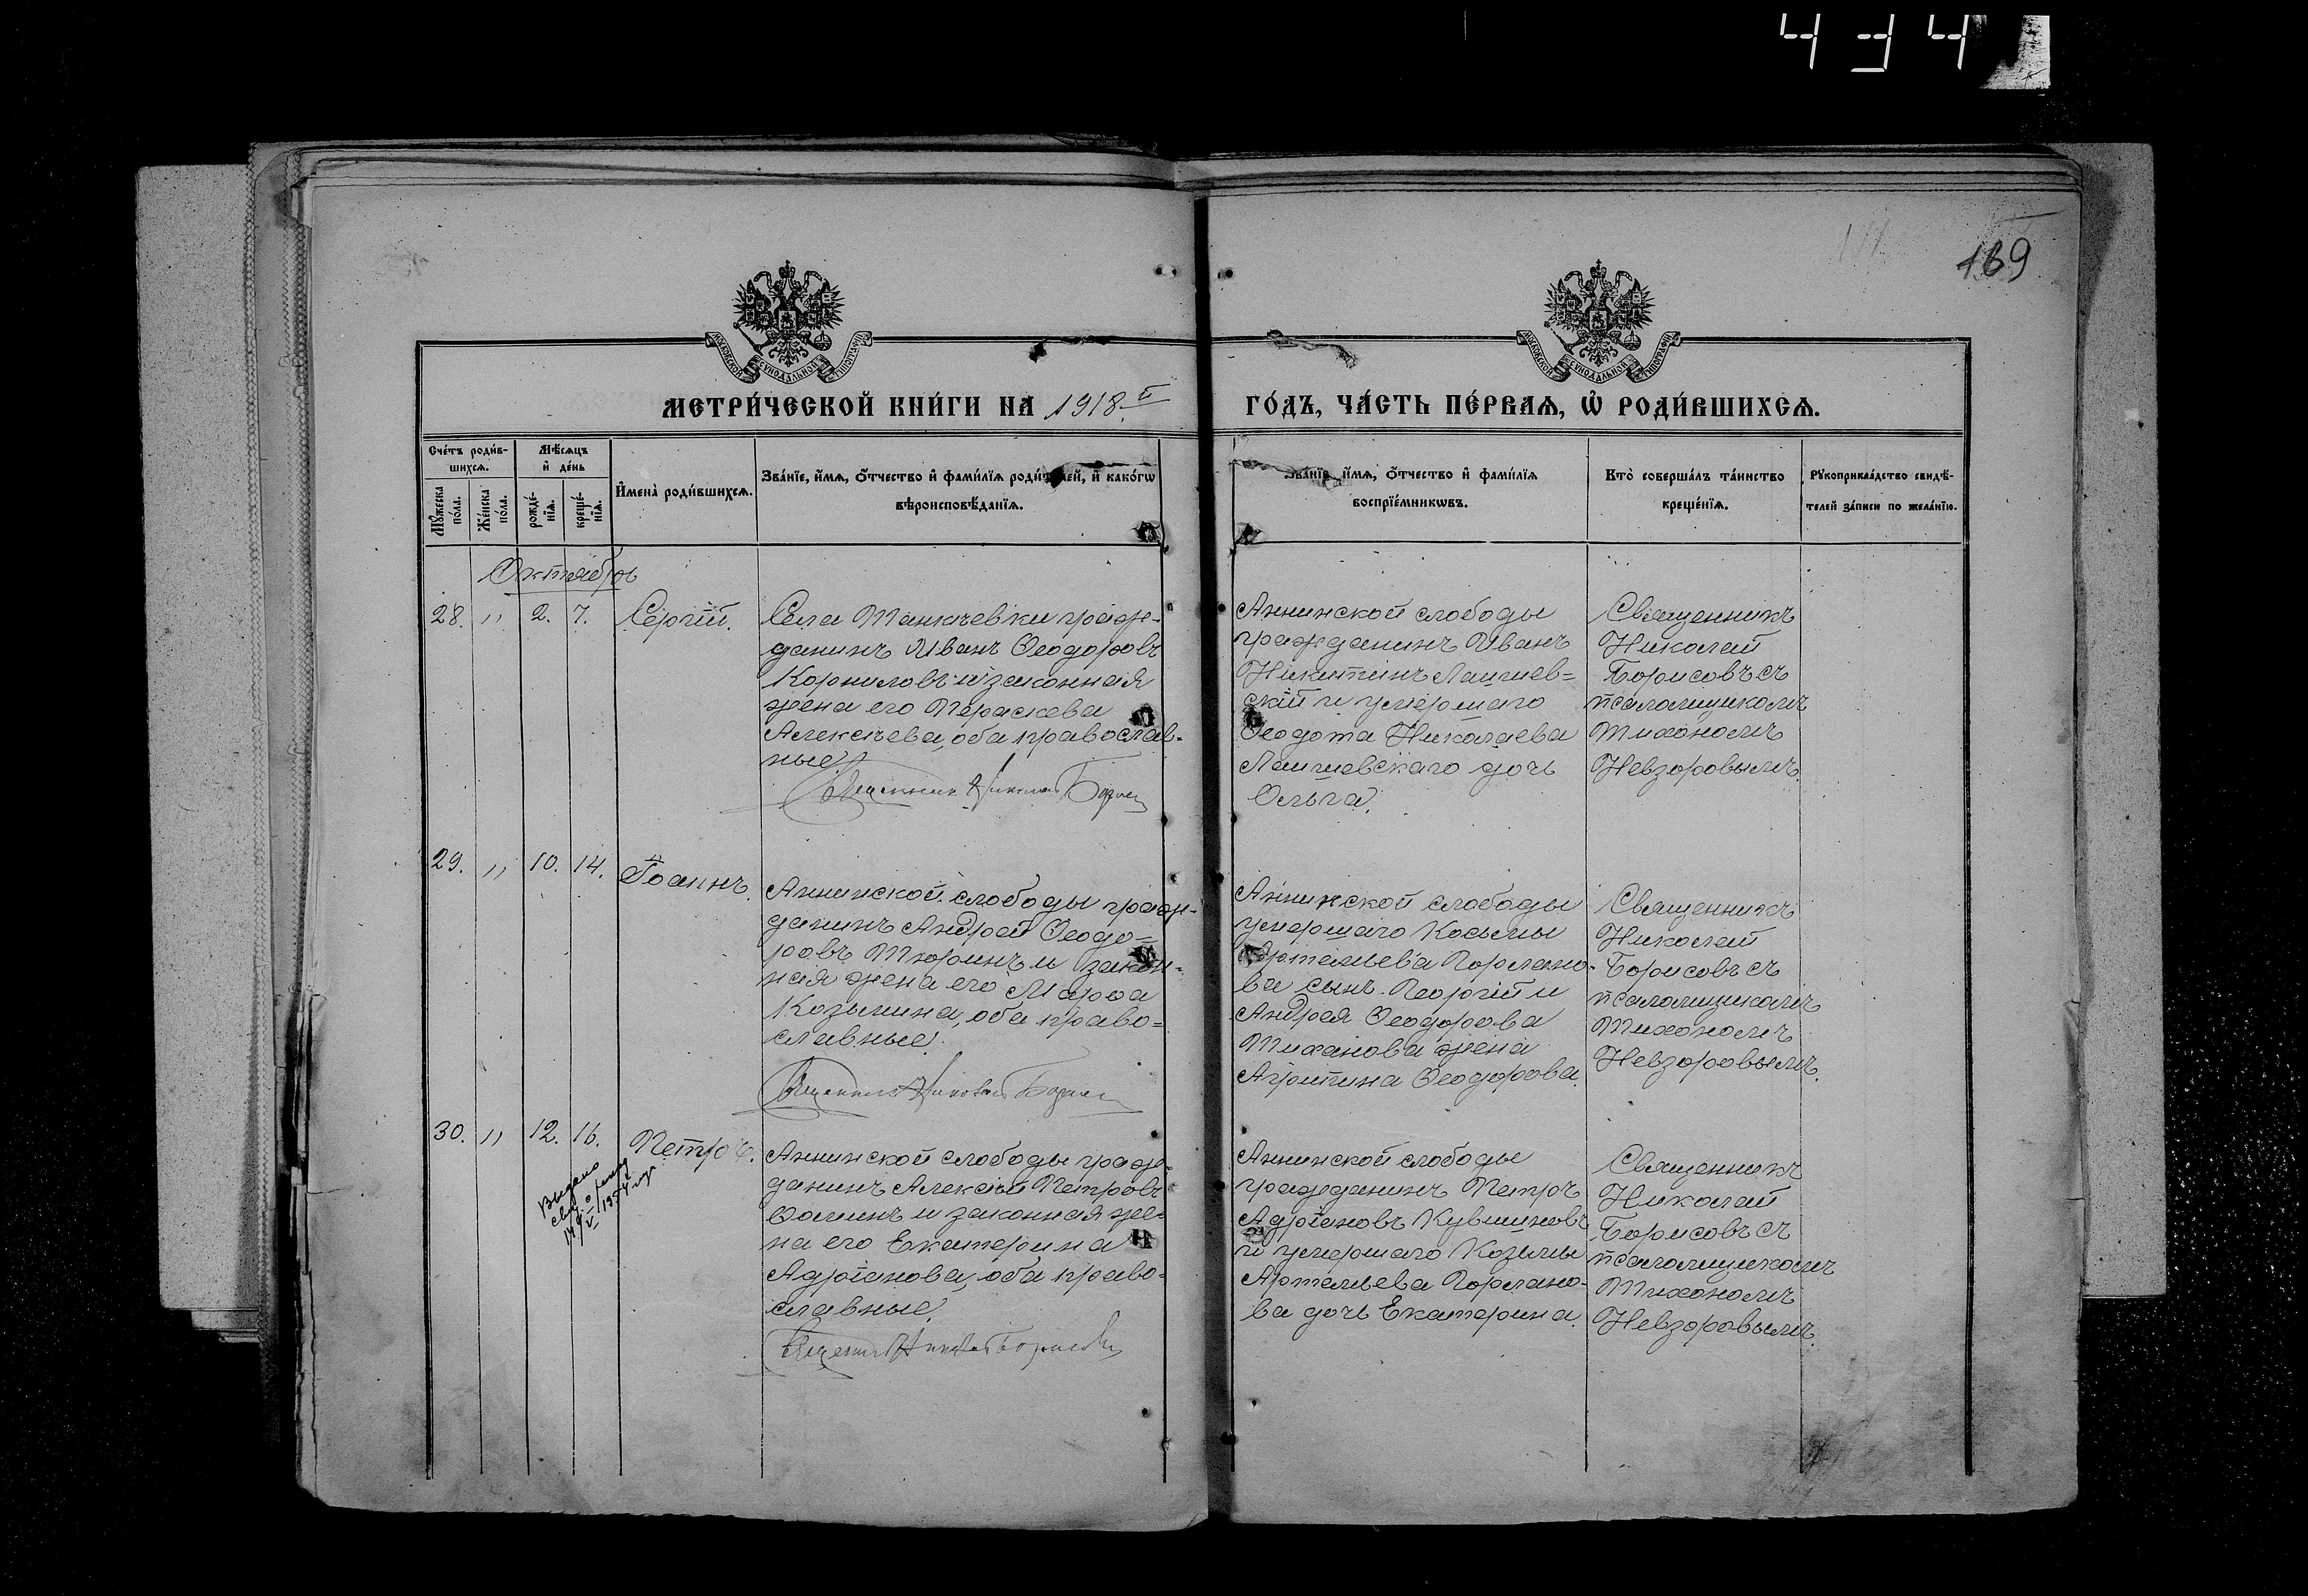 434
169
МОСКОВСКОЙ СѴНОДАЛЬНОЙ ТИПОГРАФІИ
МОСКОВСКОЙ СѴНОДАЛЬНОЙ ТИПОГРАФІИ
МЕТРИ́ЧЕСКОЙ КНИ́ГИ НА 1918.й
ГО́ДЪ, ЧА́СТЬ ПЕ́РВАѦ, Ѽ РОДИ́ВШИХСѦ.
Сче́тъ роди́в-
шихсѧ.
Мѣ́сѧцъ
и҆ де́нь
Мꙋ́жеска по́ла.
Же́нска по́ла.
рожде́-
нїѧ.
креще́-
нїѧ.
И҆мена̀ роди́вшихсѧ.
Зва́нїе, и҆́мѧ, ѻ҆́тчество и҆ фами́лїѧ роди́телей, и҆ како́гѡ
вѣроисповѣ́данїѧ.
Зва́нїе, и҆́мѧ, ѻ҆́тчество и҆ фами́лїѧ
воспрїе́мникѡвъ.
Кто̀ соверша́лъ та́инство
креще́нїѧ.
Рꙋкоприкла́дство свидѣ́-
телей за́писи по жела́нїю.
Октябрь
28. " 2. 7. Сергій.
Села Танкѣевки граж-
данинъ Иванъ Ѳеодоровъ
Корниловъ и законная
жена его Параскева
Алексѣева, оба православ-
ные.
Священник Николай Борисов
Аннинской слободы
гражданинъ Иванъ
Никитинъ Лаишев=
скій и умершаго
Ѳеодота Николаева
Лаишевскаго дочь
Ольга.
Священникъ
Николай
Борисовъ съ
псаломщикомъ
Тихономъ
Невзоровымъ.
29. " 10. 14. Іоаннъ.
Аннинской слободы граж-
данинъ Андрей Ѳеодо=
ровъ Тюринъ и закон=
ная жена его Марѳа
Козьмина, оба право=
славные.
Священник Николай Борисов
Аннинской слободы
умершаго Косьмы
Артемьева Горлано-
ва сынъ Георгій и
Андрея Ѳеодорова
Тиханова жена
Агрипина Ѳеодорова.
Священникъ
Николай
Борисовъ съ
псаломщикомъ
Тихономъ
Невзоровымъ.
30. " 12. 16. Петръ.
Выдано
Аннинской слободы граж-
данинъ Алексѣй Петровъ
Ѳоминъ и законная же-
на его Екатерина
Адріанова, оба право-
славные.
Священник Николай Борисов
Аннинской слободы
гражданинъ Петръ
Адріановъ Кувшиновъ
и умершаго Козьмы
Артемьева Горлано-
ва дочь Екатерина.
Священникъ
Николай
Борисовъ съ
псаломщикомъ
Тихономъ
Невзоровымъ.